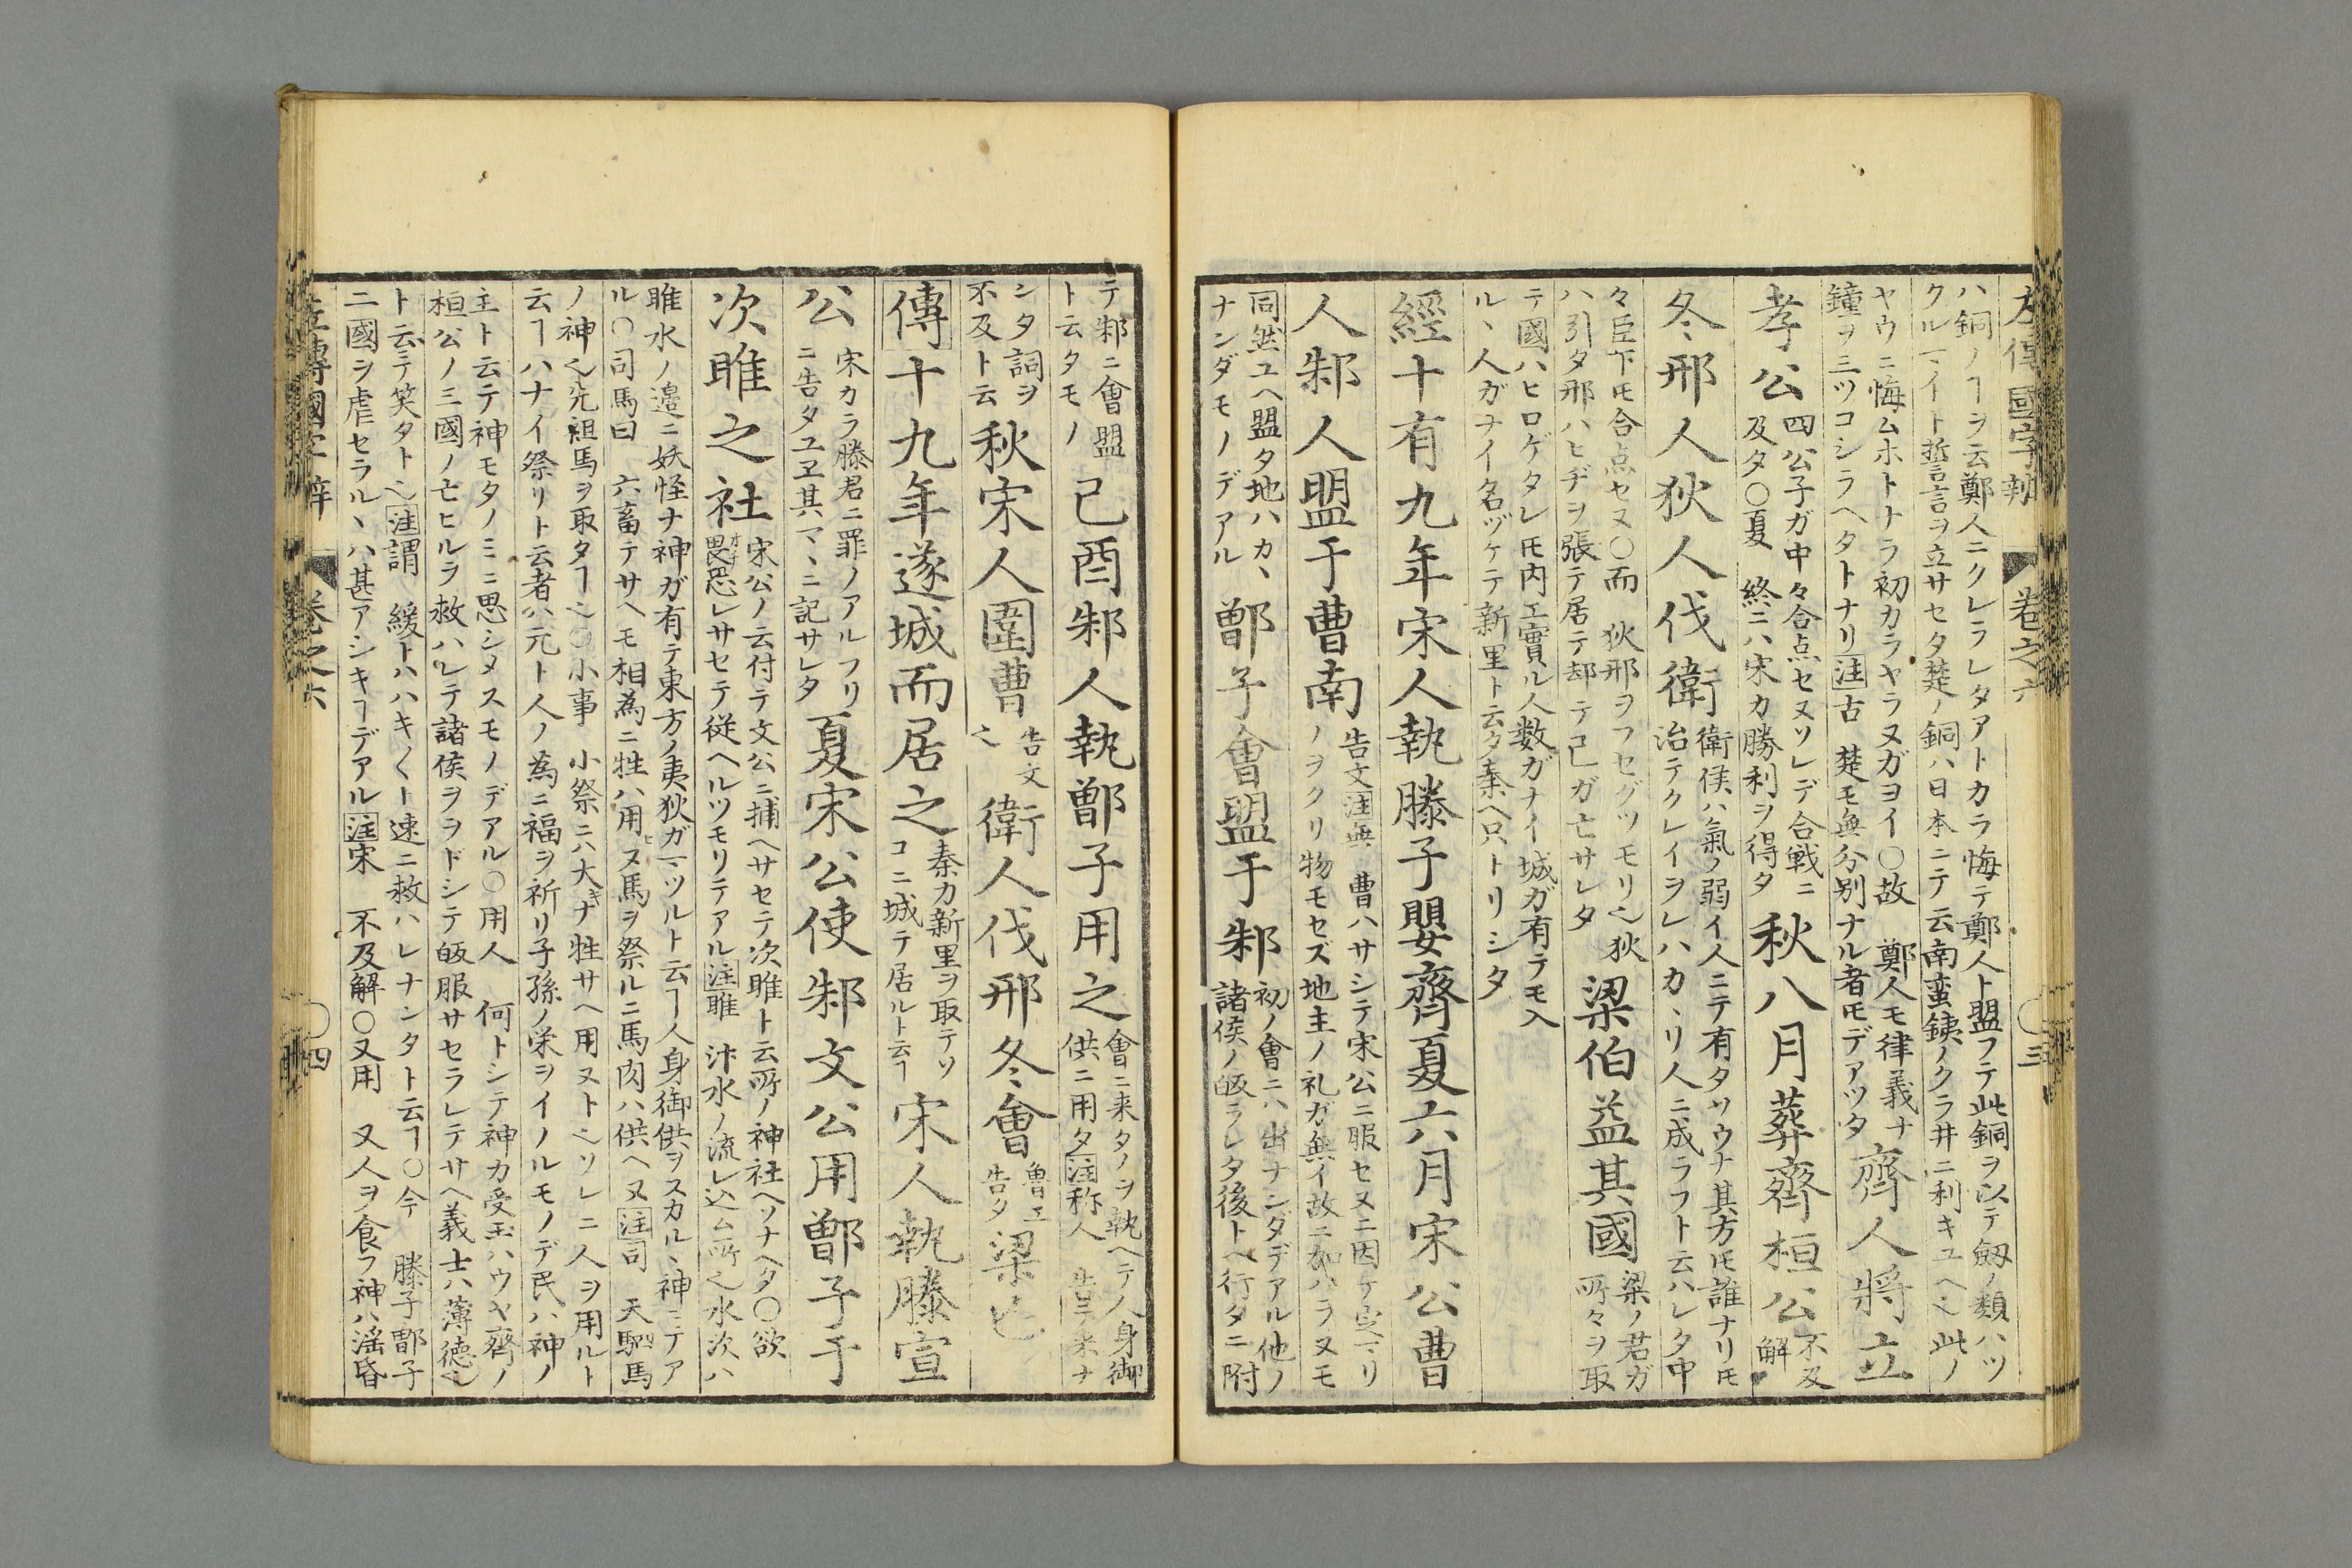 左傳國字辨 卷之六 三
ハ銅ノヿヲ云鄭人ニクレラレタアトカラ悔テ鄭人ト盟フテ此銅ヲ以テ劔ノ類ハツ
クルマイト誓言ヲ立サセタ楚ノ銅ハ日本ニテ云南蛮銕ノクラ井ニ利キユヘ也此ノ
ヤウニ悔ムホトナラ初カラヤラヌガヨイ〇故 鄭人モ律義ナ
鐘ヲ三ツコシラヘタトナリ注古 楚モ無分別ナル者𪜈デアツタ
齊人將立
孝公
四公子ガ中々合点セヌソレデ合戦ニ
及タ〇夏 終ニハ宋カ勝利ヲ得タ
秋八月葬齊桓公
不及
解
冬邢人狄人伐衛
衛侯ハ氣ノ弱イ人ニテ有タサウナ其方𪜈誰ナリ𪜈
治テクレイヲレハカヽリ人ニ成ラフト云ハレタ中
々臣下𪜈合点セヌ〇而 狄邢ヲフセグツモリ也狄
ハ引タ邢ハヒヂヲ張テ居テ却テ己ガ亡サレタ
梁伯益其國
梁ノ君ガ
所々ヲ取
テ國ハヒロゲタレ𪜈内エ實ル人数ガナイ城ガ有テモ入
ルヽ人ガナイ名ヅケテ新里ト云タ秦ヘ只トリシタ
經十有九年宋人執滕子嬰齊夏六月宋公曹
人邾人盟于曹南
告文注無 曹ハサシテ宋公ニ服セヌニ因ケ
ノヲクリ物モセズ地主ノ礼ガ無イ故ニ加ハラヌモ
同然ユヘ盟タ地ハカヽ
ナンダモノデアル
鄫子會盟于邾
初ノ會ニハ出ナンダデアル他ノ
諸侯ノ皈ラレタ後トヘ行タニ附
テ邾ニ會盟
ト云タモノ
己酉邾人執鄫子用之
會ニ来タノヲ執ヘテ人身御
供ニ用タ注称人 告テ来ナ
ンタ詞ヲ
不及ト云
秋宋人圍曹
告文
也
衛人伐邢冬會
魯エ
告タ
梁亡
傳十九年遂城而居之
秦カ新里ヲ取テソ
コニ城テ居ルト云ヿ
宋人執滕宣
公
宋カラ滕君ニ罪ノアルフリ
ニ告タユヱ其マヽニ記サレタ
夏宋公使邾文公用鄫子于
次睢之社
宋公ノ云付テ文公ニ捕ヘサセテ次睢ト云所ノ神社ヘソナヘタ〇欲
畏恐レサセテ従ヘルツモリテアル注睢 汴水ノ流レ込ム所也水次ハ
睢水ノ邉ニ妖怪ナ神ガ有テ東方ノ夷狄ガマツルト云ヿ人身御供ヲスカルヽ神ニテア
ル〇司馬曰 六畜テサヘモ相為ニ牲ハ用ヌ馬ヲ祭ルニ馬肉ハ供ヘヌ注司 天駟馬
ノ神也先祖馬ヲ取タヿ也〇小事 小祭ニハ大キナ牲サヘ用ヌト也ソレニ人ヲ用ルト
云ヿハナイ祭リト云者ハ元ト人ノ為ニ福ヲ祈リ子孫ノ栄ヲイノルモノデ民ハ神ノ
主ト云テ神モタノミニ思シメスモノデアル〇用人 何トシテ神カ受玉ハウヤ齊ノ
桓公ノ三國ノ亡ヒルヲ救ハレテ諸侯ヲヲドシテ皈服サセラレテサヘ義士ハ薄徳也
ト云テ笑タト也注謂 緩トハハキ〳〵ト速ニ救ハレナンタト云ヿ〇今 滕子鄫子
二國ヲ虐セラルヽハ甚アシキヿデアル注宋 不及解〇又用 又人ヲ食フ神ハ滛昏
左傳國字辨 卷之六 四